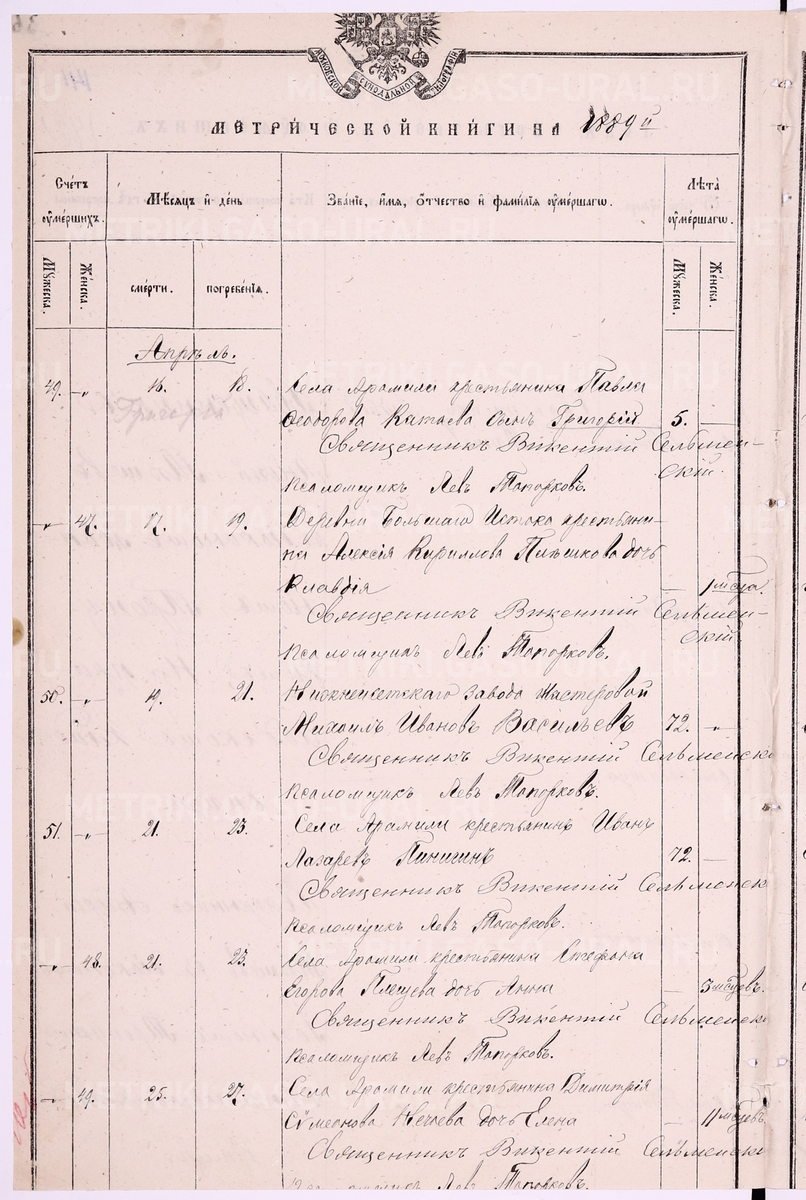 МОСКОВСКОЙ СѴНОДАЛЬНОЙ ТИПОГРАФІИ
МЕТРИЧЕСКОЙ КНИГИ НА 1889й
Счетъ оумершихъ.
Мѣсяцъ и день
Званіе, имя, отчество и фамилія оумершагω.
Лѣта оумершагω.
Мужеска. Женска. смерти. погребенія. Мужеска. Женска.
Апрѣль.
49. -„- 16. 18. Села Арамили крестьянина Павла
Ѳеодорова Катаева сынъ Григорій 5. —
Священникъ Викентій Сельмен-
скій.
Псаломщикъ Левъ Топорковъ.
-„- 47. 17. 19. Деревни Большаго Истока крестьяни-
на Алексія Кириллова Плѣшкова дочь
Клавдія — 1 мѣсца.
Священникъ Викентій Сельмен-
скій
Псаломщикъ Левъ Топорковъ.
50. -„- 19. 21. Нижнеисетскаго завода мастеровой
Михаилъ Ивановъ Васильевъ 72. -„-
Священникъ Викентій Сельменск
Псаломщикъ Левъ Топорковъ.
51. -„- 21. 23. Села Арамили крестьянинъ Иванъ
Лазаревъ Пинигинъ 72. —
Священникъ Викентій Сельменск
Псаломщикъ Левъ Топорковъ.
-„- 48. 21. 23. Села Арамили крестьянина Стефана
Егорова Плещева дочь Анна — 3 мѣсцевъ.
Священникъ Викентій Сельменск
Псаломщикъ Левъ Топорковъ.
— 49. 25. 27. Села Арамили крестьянина Димитрія
Сѵмеонова Нечаева дочь Елена — 11 мѣсцевъ
Священникъ Викентій Сельменск
Левъ Топорковъ.